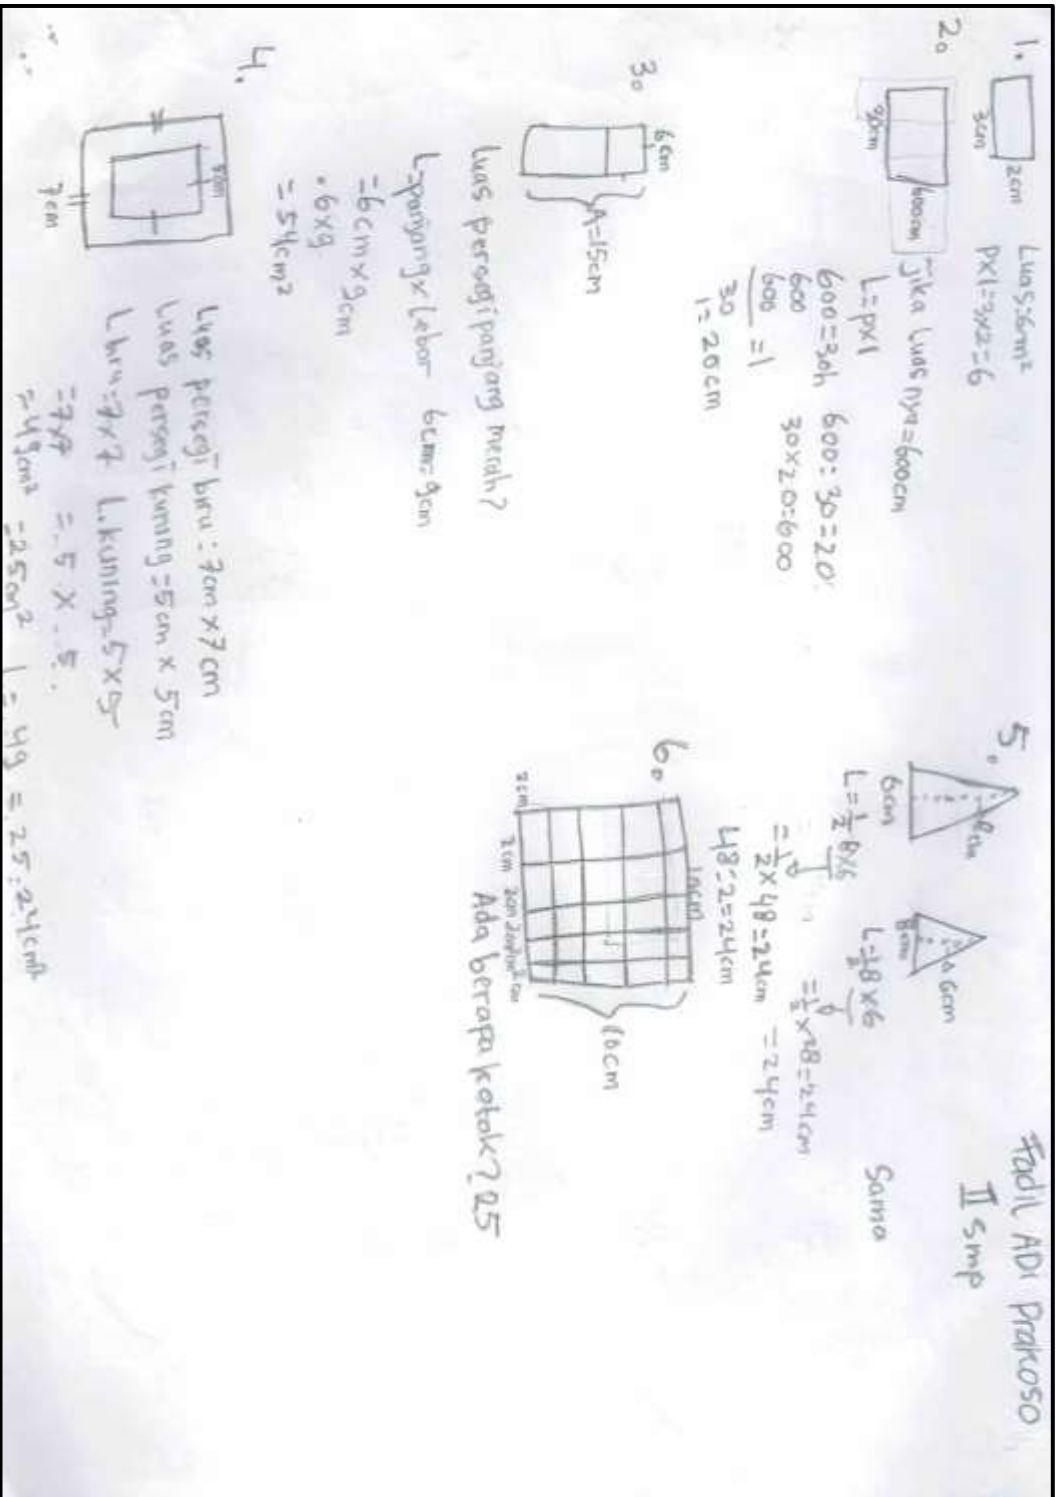 Fadil ADi Prakoso
II smp
1.
3cm
2cm
Luas=6m²
PXl=3x2=6
2.
30cm
600cm
jika Luasnya=600cm
L=pxl
600=30h
600:30=20
600
30x20=600
600 = 1
30
l=20cm
3.
6cm
A=15cm
Luas persegi panjang merah?
L=panjang x Lebar
6cm=9cm
=6cm x 9cm
6x9
=54cm²
4.
7cm
Luas persegi biru=7cm x 7cm
Luas persegi kuning=5cm x 5cm
L biru=7x7
L.kuning=5x5
=7x7
=5 x 5
=49cm²
=25cm²
49 = 25=24cm²
5.
6cm
8cm
8cm
6cm
L=1/2 8x6
L=1/2 8x6
=1/2 x 48=24cm
=1/2 x 48=24cm
48:2=24cm
=24cm
Sama
6.
10cm
10cm
2cm
2cm 2cm 2cm 2cm
Ada berapa kotak? 25